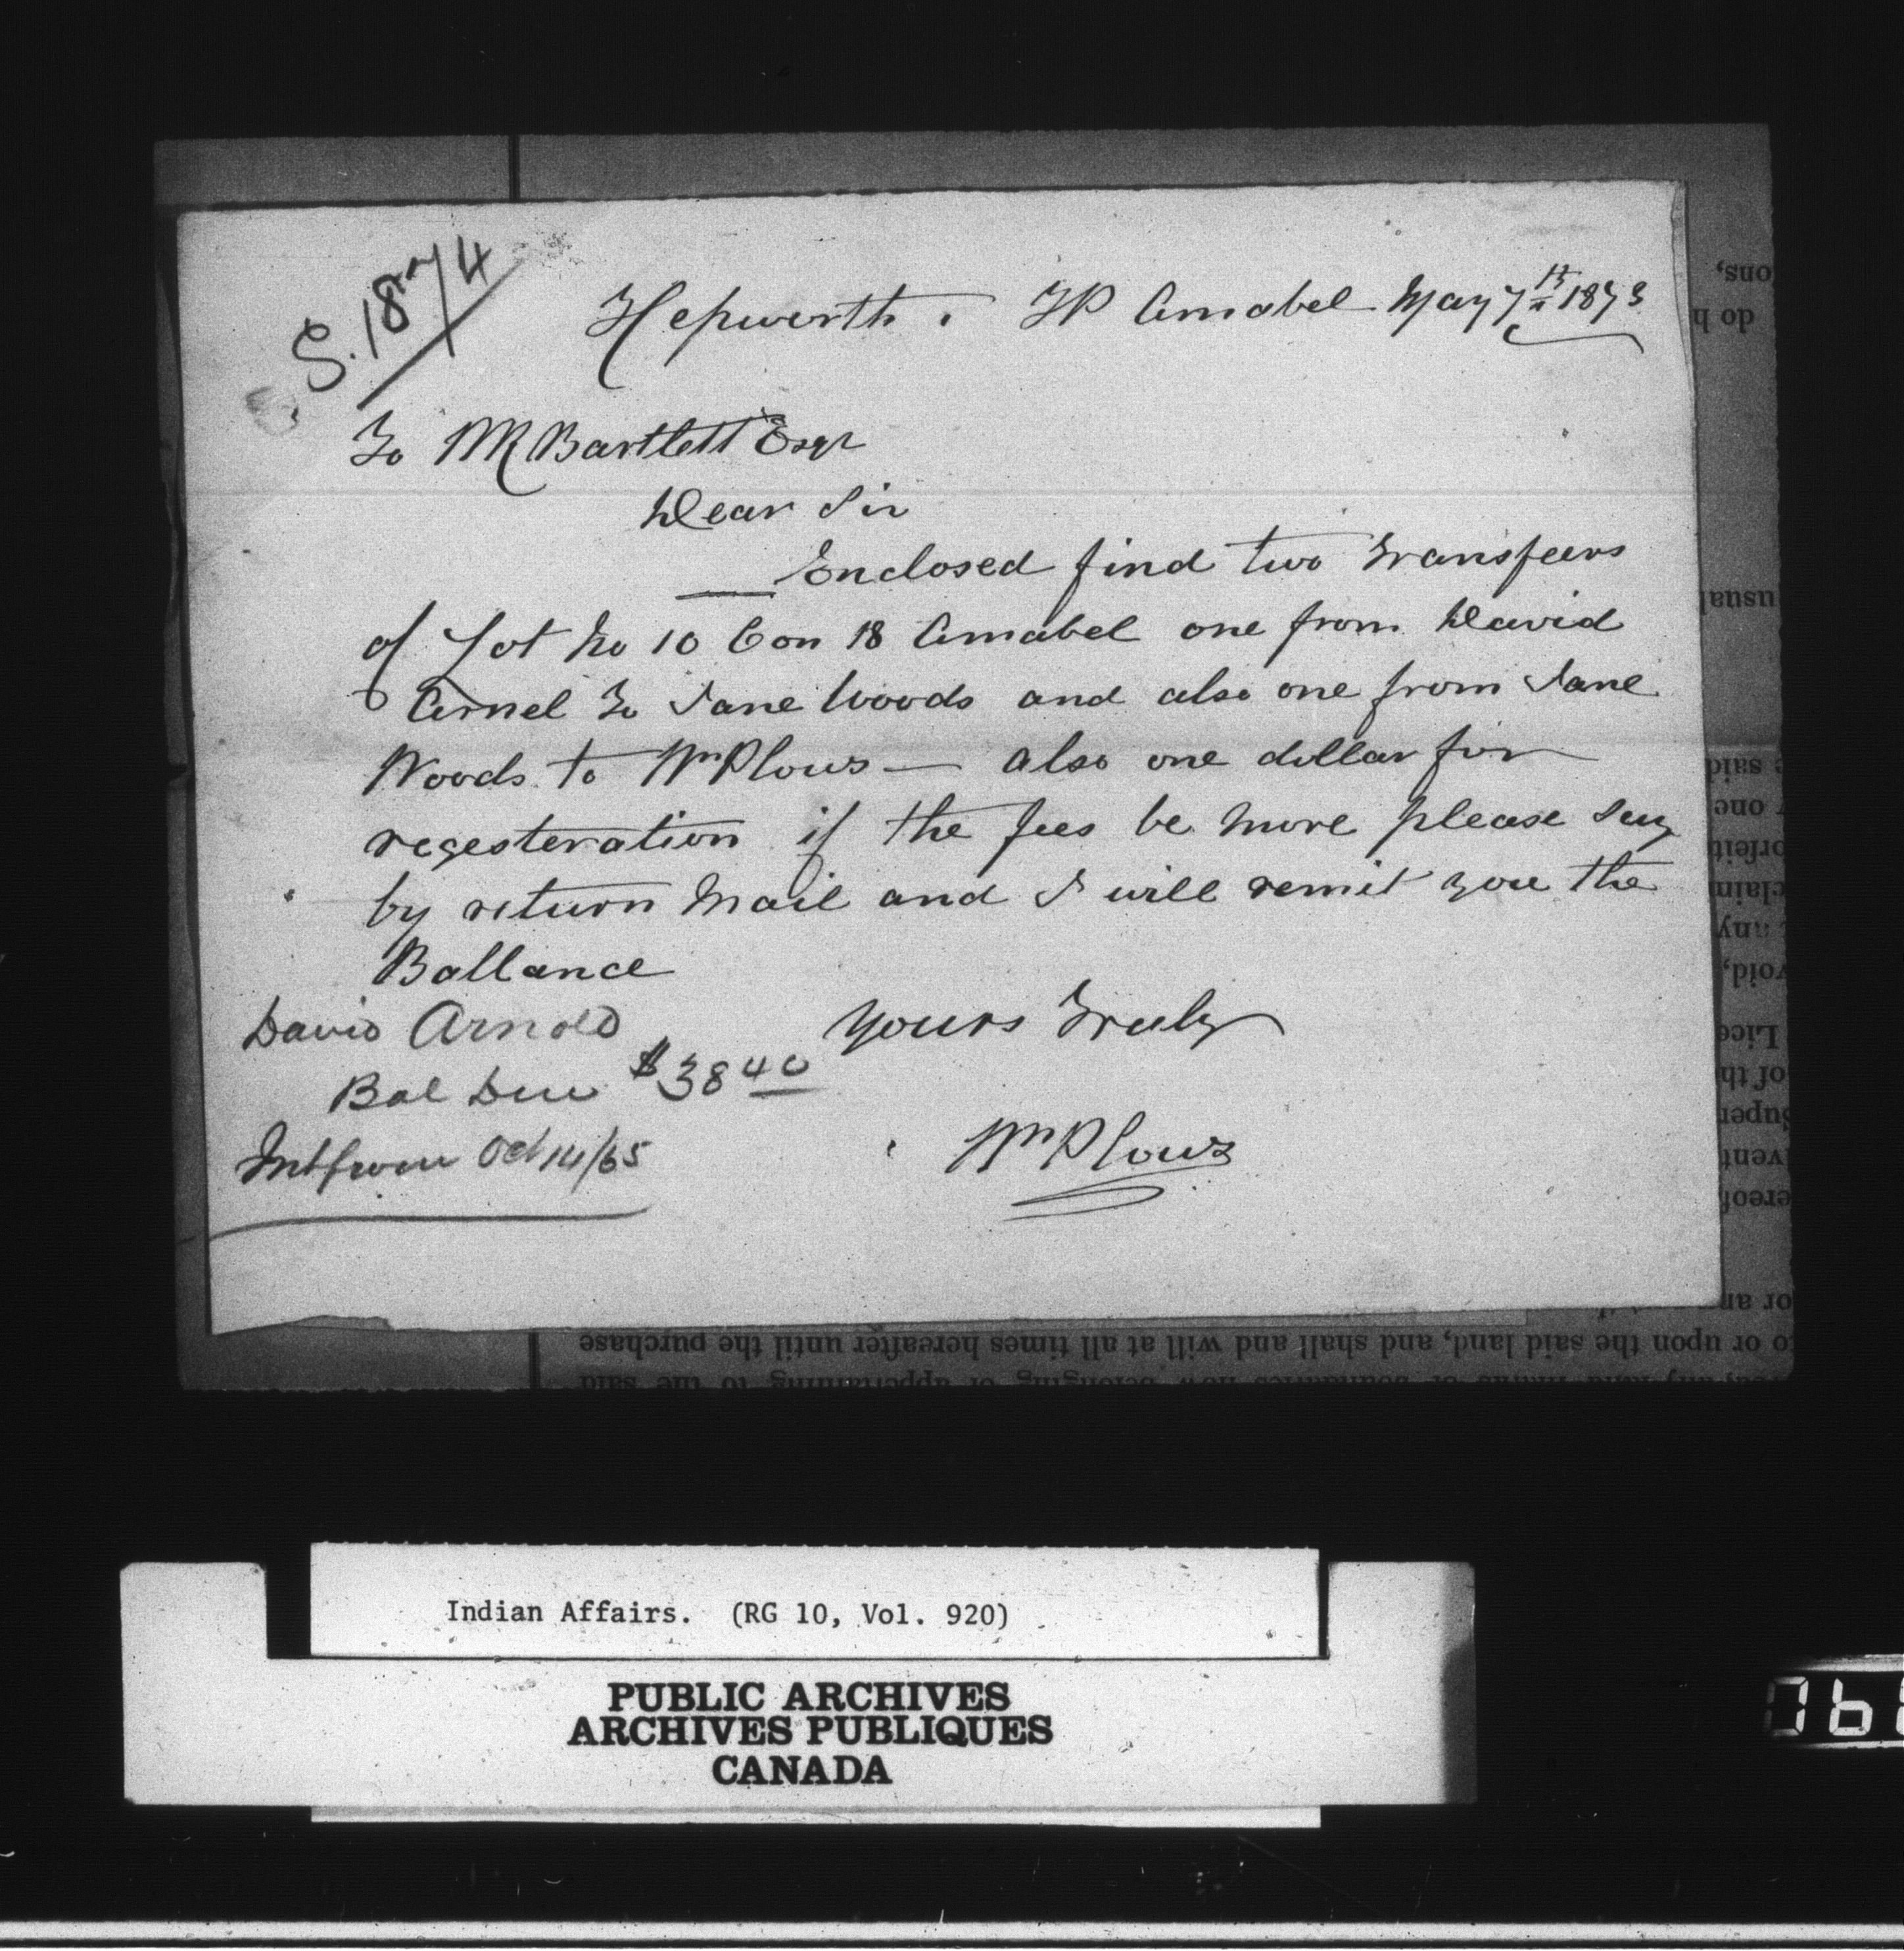 S. 18 74
Hepworth. TP Amabel May 7th 1873
To W R Bartlett Esqr
Dear Sir
Enclosed find two Transfeers
of Lot No 10 Con 18 Amabel one from David
Arnel To Jane Woods and also one from Jane
Woods to Wm Plows — also one dollar for
regesteration if the fees be more please say
by return Mail and I will remit you the
Ballance
Yours Truly
Wm Plows
David Arnold
Bal Due $38 40
Int from Oct 14/65
ons,
do h
usual
said
one
orfeit
claim
any
void,
Lice
of th
Super
vent
ereof
or an
to or upon the said land, and shall and will at all times hereafter until the purchase
marks or boundaries now belonging or appertaining to the said
Indian Affairs. (RG 10, Vol. 920)
PUBLIC ARCHIVES
ARCHIVES PUBLIQUES
CANADA